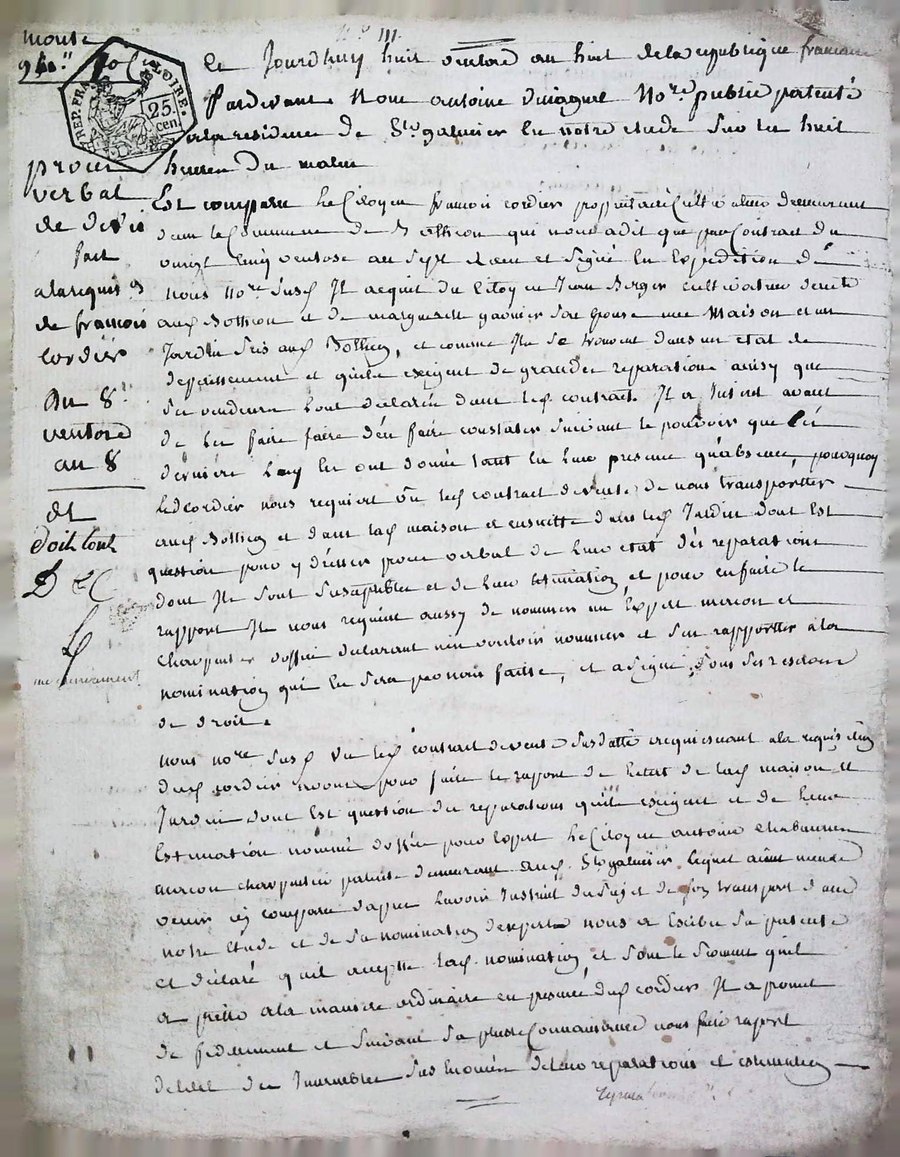 REP. FRA
LOIRE.
25.
cen.
procès
verbal
de devis
fait
a la requis on
de francois
cordier
Du 8.
ventose
an 8
et
doit tout
Ce Jourdhuy huit ventose an huit de la republique francaise
Pardevant Nous antoine No.re public patenté
a la residence de St. galmier En notre etude Sur les huit
heures du matin
Est comparu Le Citoyen francois cordier proprietaire Cultivateur demeurant
dans la Commune de qui nous a dit que par Contrat du
vingt cinq ventose an Sept et Signé En Expedition de
nous No.re Susd Il acquit du Citoyen Jean Berger cultivateur
aud et de marguerite garnier Son epouse une Maison et un
Jardin Sis aud , et comme Ils Se trouvent dans un etat de
deperissement et quils exigent de grandes reparations ainsy que
Ses vendeurs l'ont declarés dans led contrat. Il a Interet avant
de les faire faire d'en faire constater Suivant le pouvoir que Ses
derniers Luy en ont donné tant En Leur presence qu'absence, pourquoy
Led Cordier nous requiert Vu led contrat de vente, de nous transporter
aud et dans lad maison et ensuitte dans led Jardin dont Est
question pour y dresser procès verbal de Leur etat des reparations
dont Ils Sont Susceptibles et de Leur Estimation, et pour en faire le
rapport Il nous requiert aussy de nommer un Expert macon et
charpentier d'office declarant n'en vouloir nommer et S'en rapportter à la
nomination qui En Sera par nous faitte, et a Signé, Sous Ses reserves
de droit.
Nous No.re Susd Vu led contrat de vente Susdatté acquiesçant a la requisition
dud cordier avons pour faire le raport de l'etat de lad maison et
Jardin dont Est question des reparations qu'ils exigent et de Leur
Estimation nommé d'office pour Expert Le Citoyen antoine
macon charpentier patenté demeurant aud. St. galmier Lequel aiant mandé
venir Est comparu d'apres L'avoir Instruit du Sujet de Son transport dans
notre Etude et de Sa nomination d'expert nous a Exibé Sa patente
et déclaré qu'il accepte lad. nomination, et Sous le Serment qu'il
a pretté a la maniere ordinaire en presence dud cordier Il a promit
de fidellement et Suivant Sa pleine Connaissance nous faire raport
de l'etat des Immeubles Sus Enoncés de Leur reparations et estimation